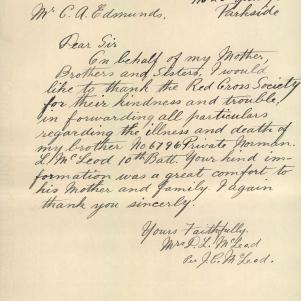 Parkside
Mr C. A. Edmunds.
Dear Sir
On behalf of my Mother,
Brothers and Sisters, I would
like to thank the Red Cross Society
for their kindness and trouble,
in forwarding all particulars
regarding the illness and death of
my brother No 6796 Private Norman.
L. McLeod 10th Batt. Your kind in-
formation was a great comfort to
his Mother and family. I again
thank you sincerely.
Yours Faithfully.
Mrs D. L. McLeod
Per J. C. McLeod.